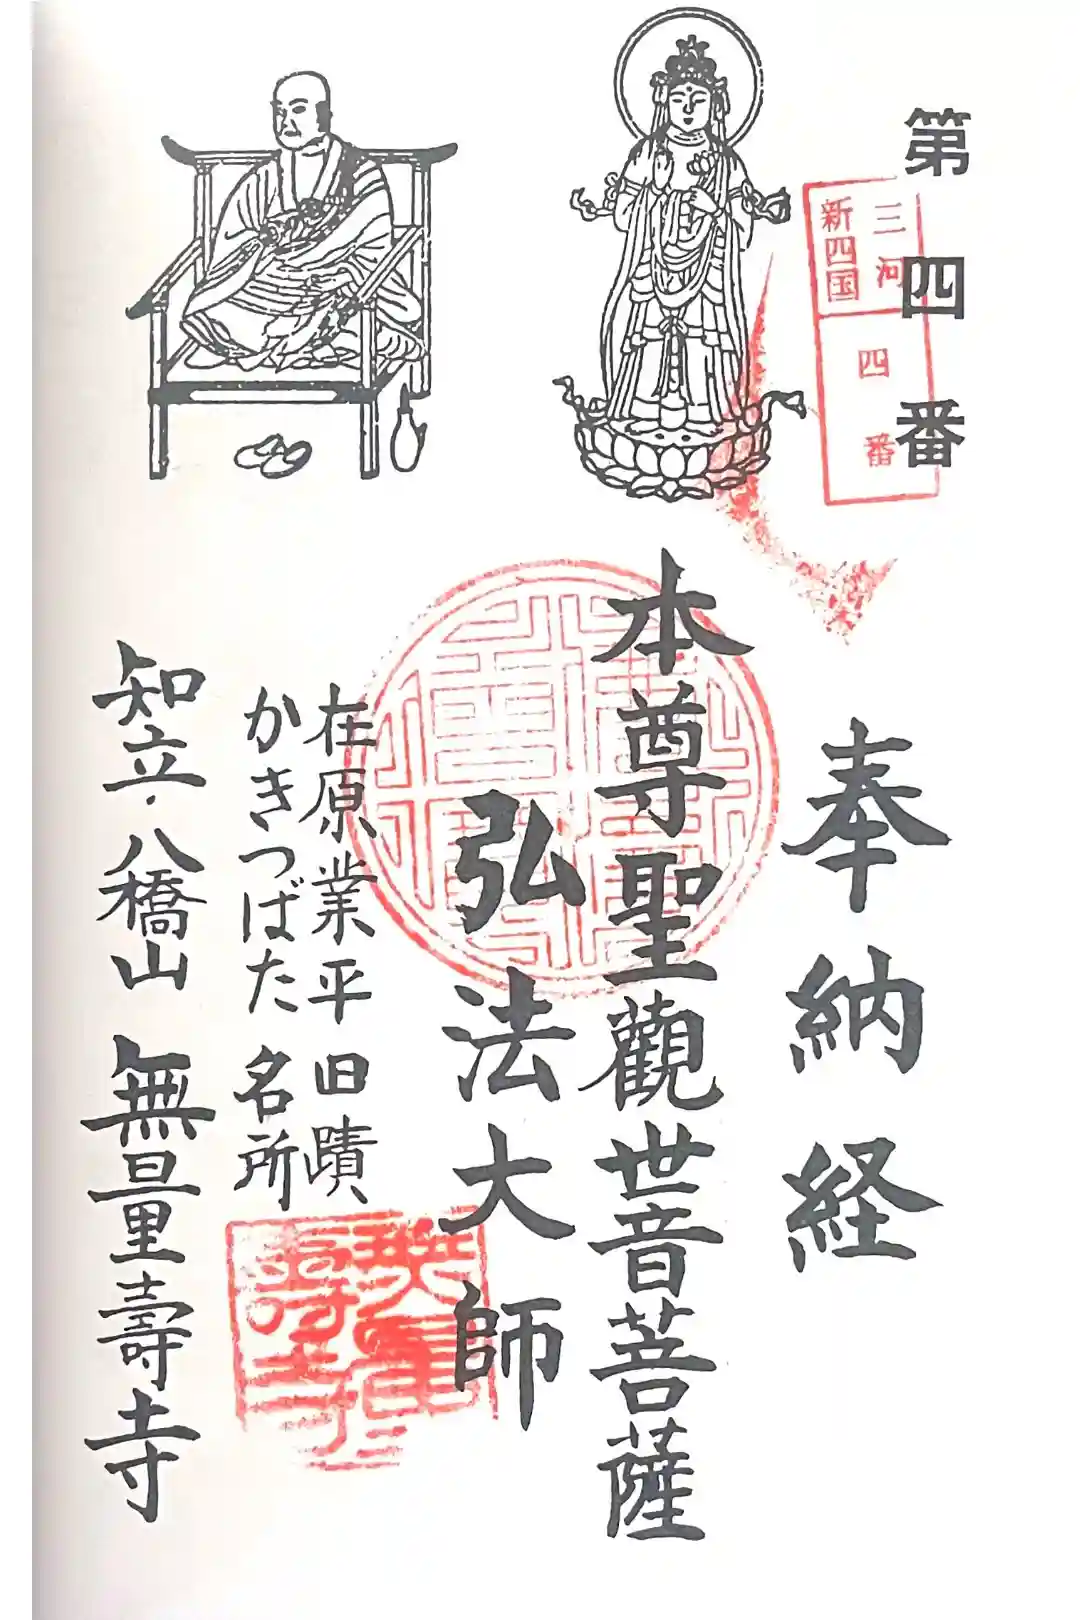 第四番
三河
新四国
四番
奉納経
本尊聖觀世音菩薩
弘法大師
在原業平旧蹟
かきつばた名所
知立・八橋山 無量壽寺